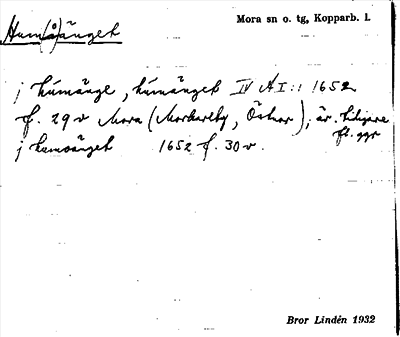 Hum(å)änget
Mora sn o. tg, Kopparb. l.
j húmänge, húmänget IV A I:1 1652
f. 29v Mora (Morkarlby, Östnor); äv. tidigare
fl. ggr
j humoänget 1652 f. 30v.
Bror Lindén 1932